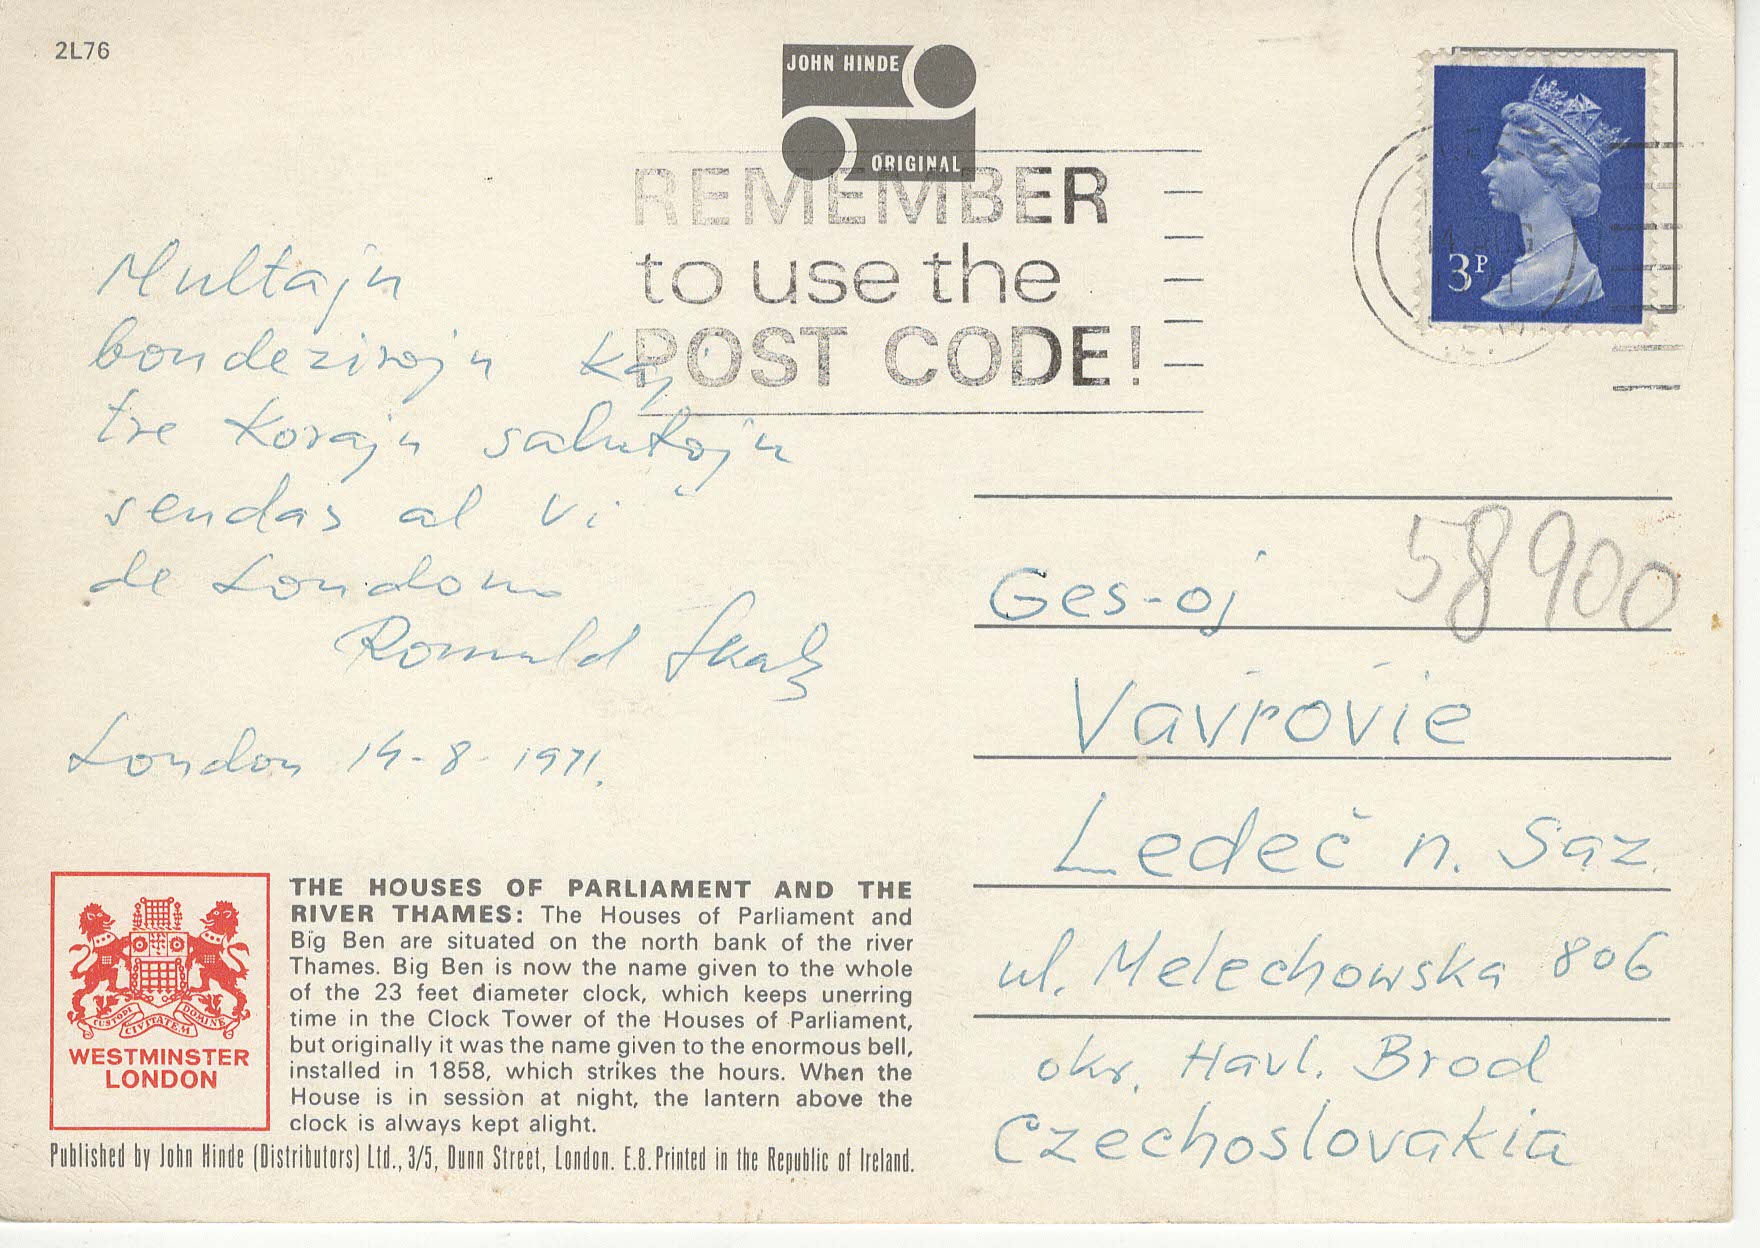 2L76
JOHN HINDE
ORIGINAL
REMEMBER
to use the
POST CODE!
14 AUG
3P
Multajn
bondezirojn kaj
tre korajn salutojn
sendas al vi
de Londono
Romuald
London 14-8-1971.
58900
Ges-oj
Vavrovie
Ledeč n. Saz.
ul. Melechowska 806
okr. Havl. Brod
Czechoslovakia
CUSTODI CIVITATEM DOMINE
WESTMINSTER
LONDON
THE HOUSES OF PARLIAMENT AND THE
RIVER THAMES: The Houses of Parliament and
Big Ben are situated on the north bank of the river
Thames. Big Ben is now the name given to the whole
of the 23 feet diameter clock, which keeps unerring
time in the Clock Tower of the Houses of Parliament,
but originally it was the name given to the enormous bell,
installed in 1858, which strikes the hours. When the
House is in session at night, the lantern above the
clock is always kept alight.
Published by John Hinde (Distributors) Ltd., 3/5, Dunn Street, London. E.8. Printed in the Republic of Ireland.